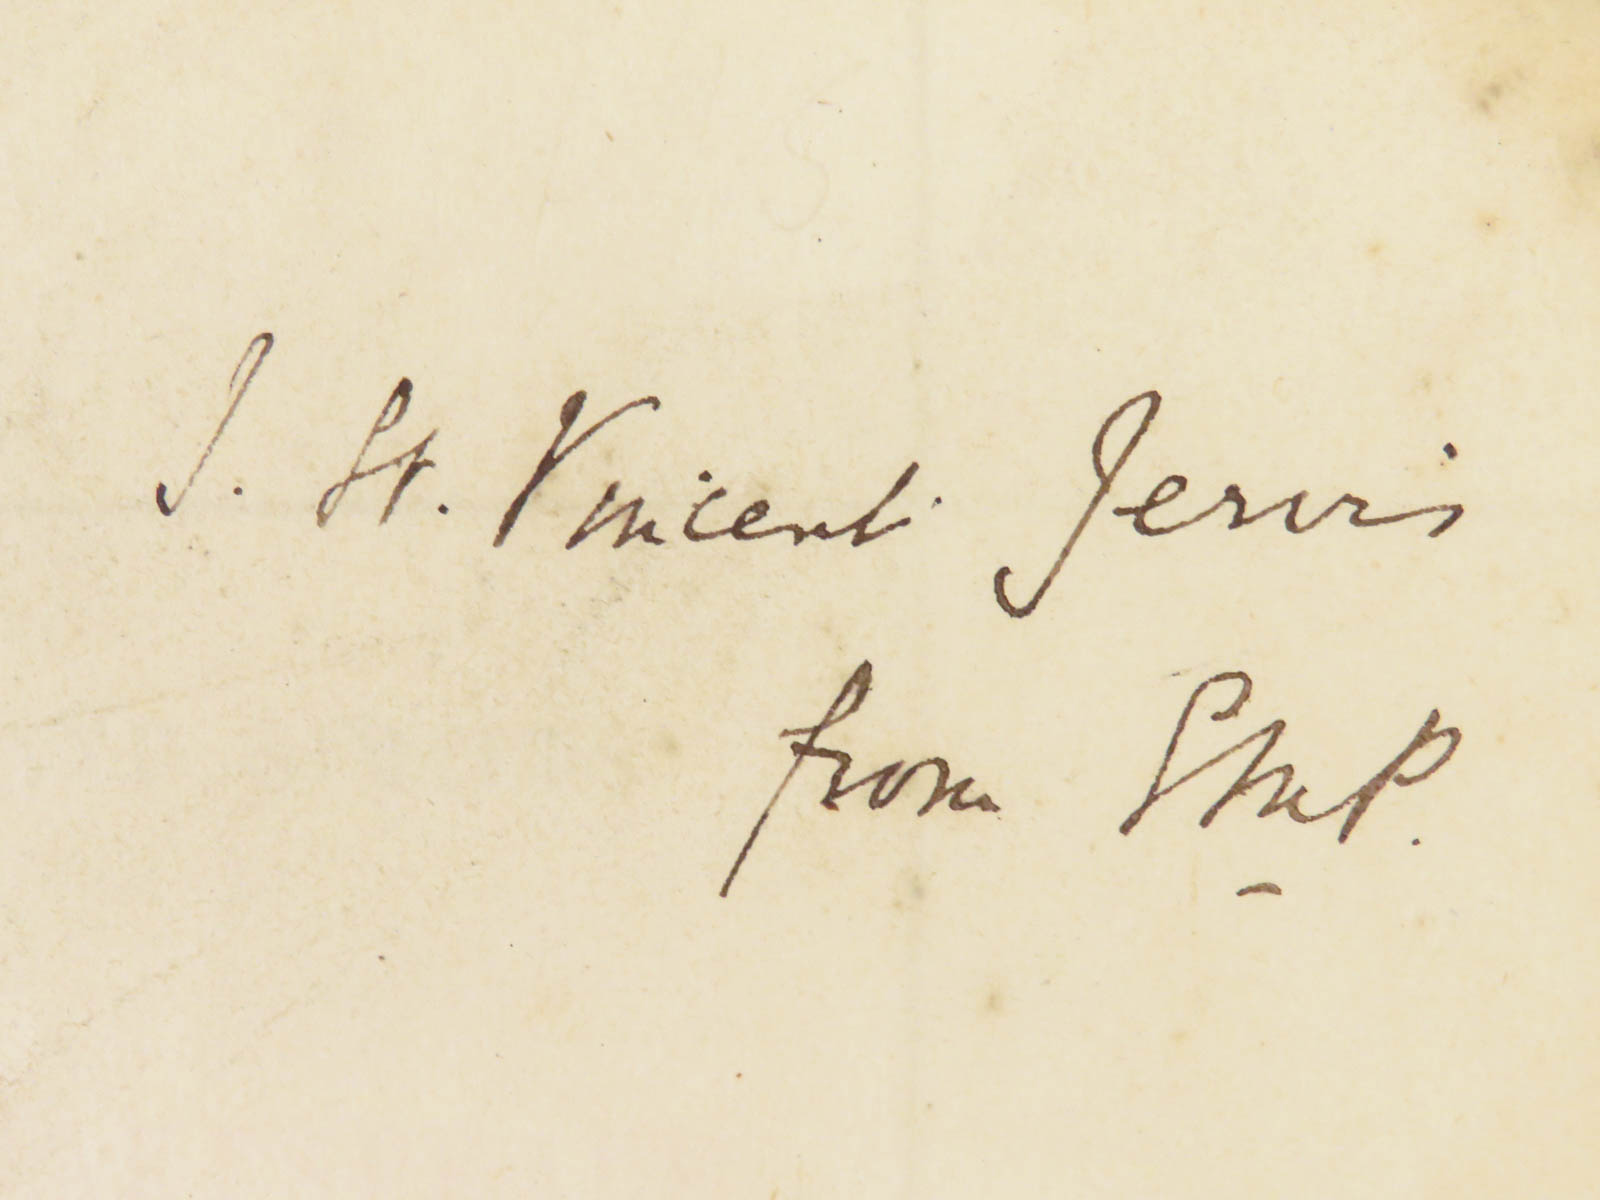 J. St. Vincent Jervis
from